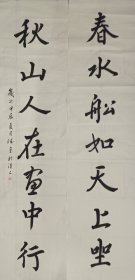 春水船如天上坐
秋山人在画中行
歲次甲辰夏月